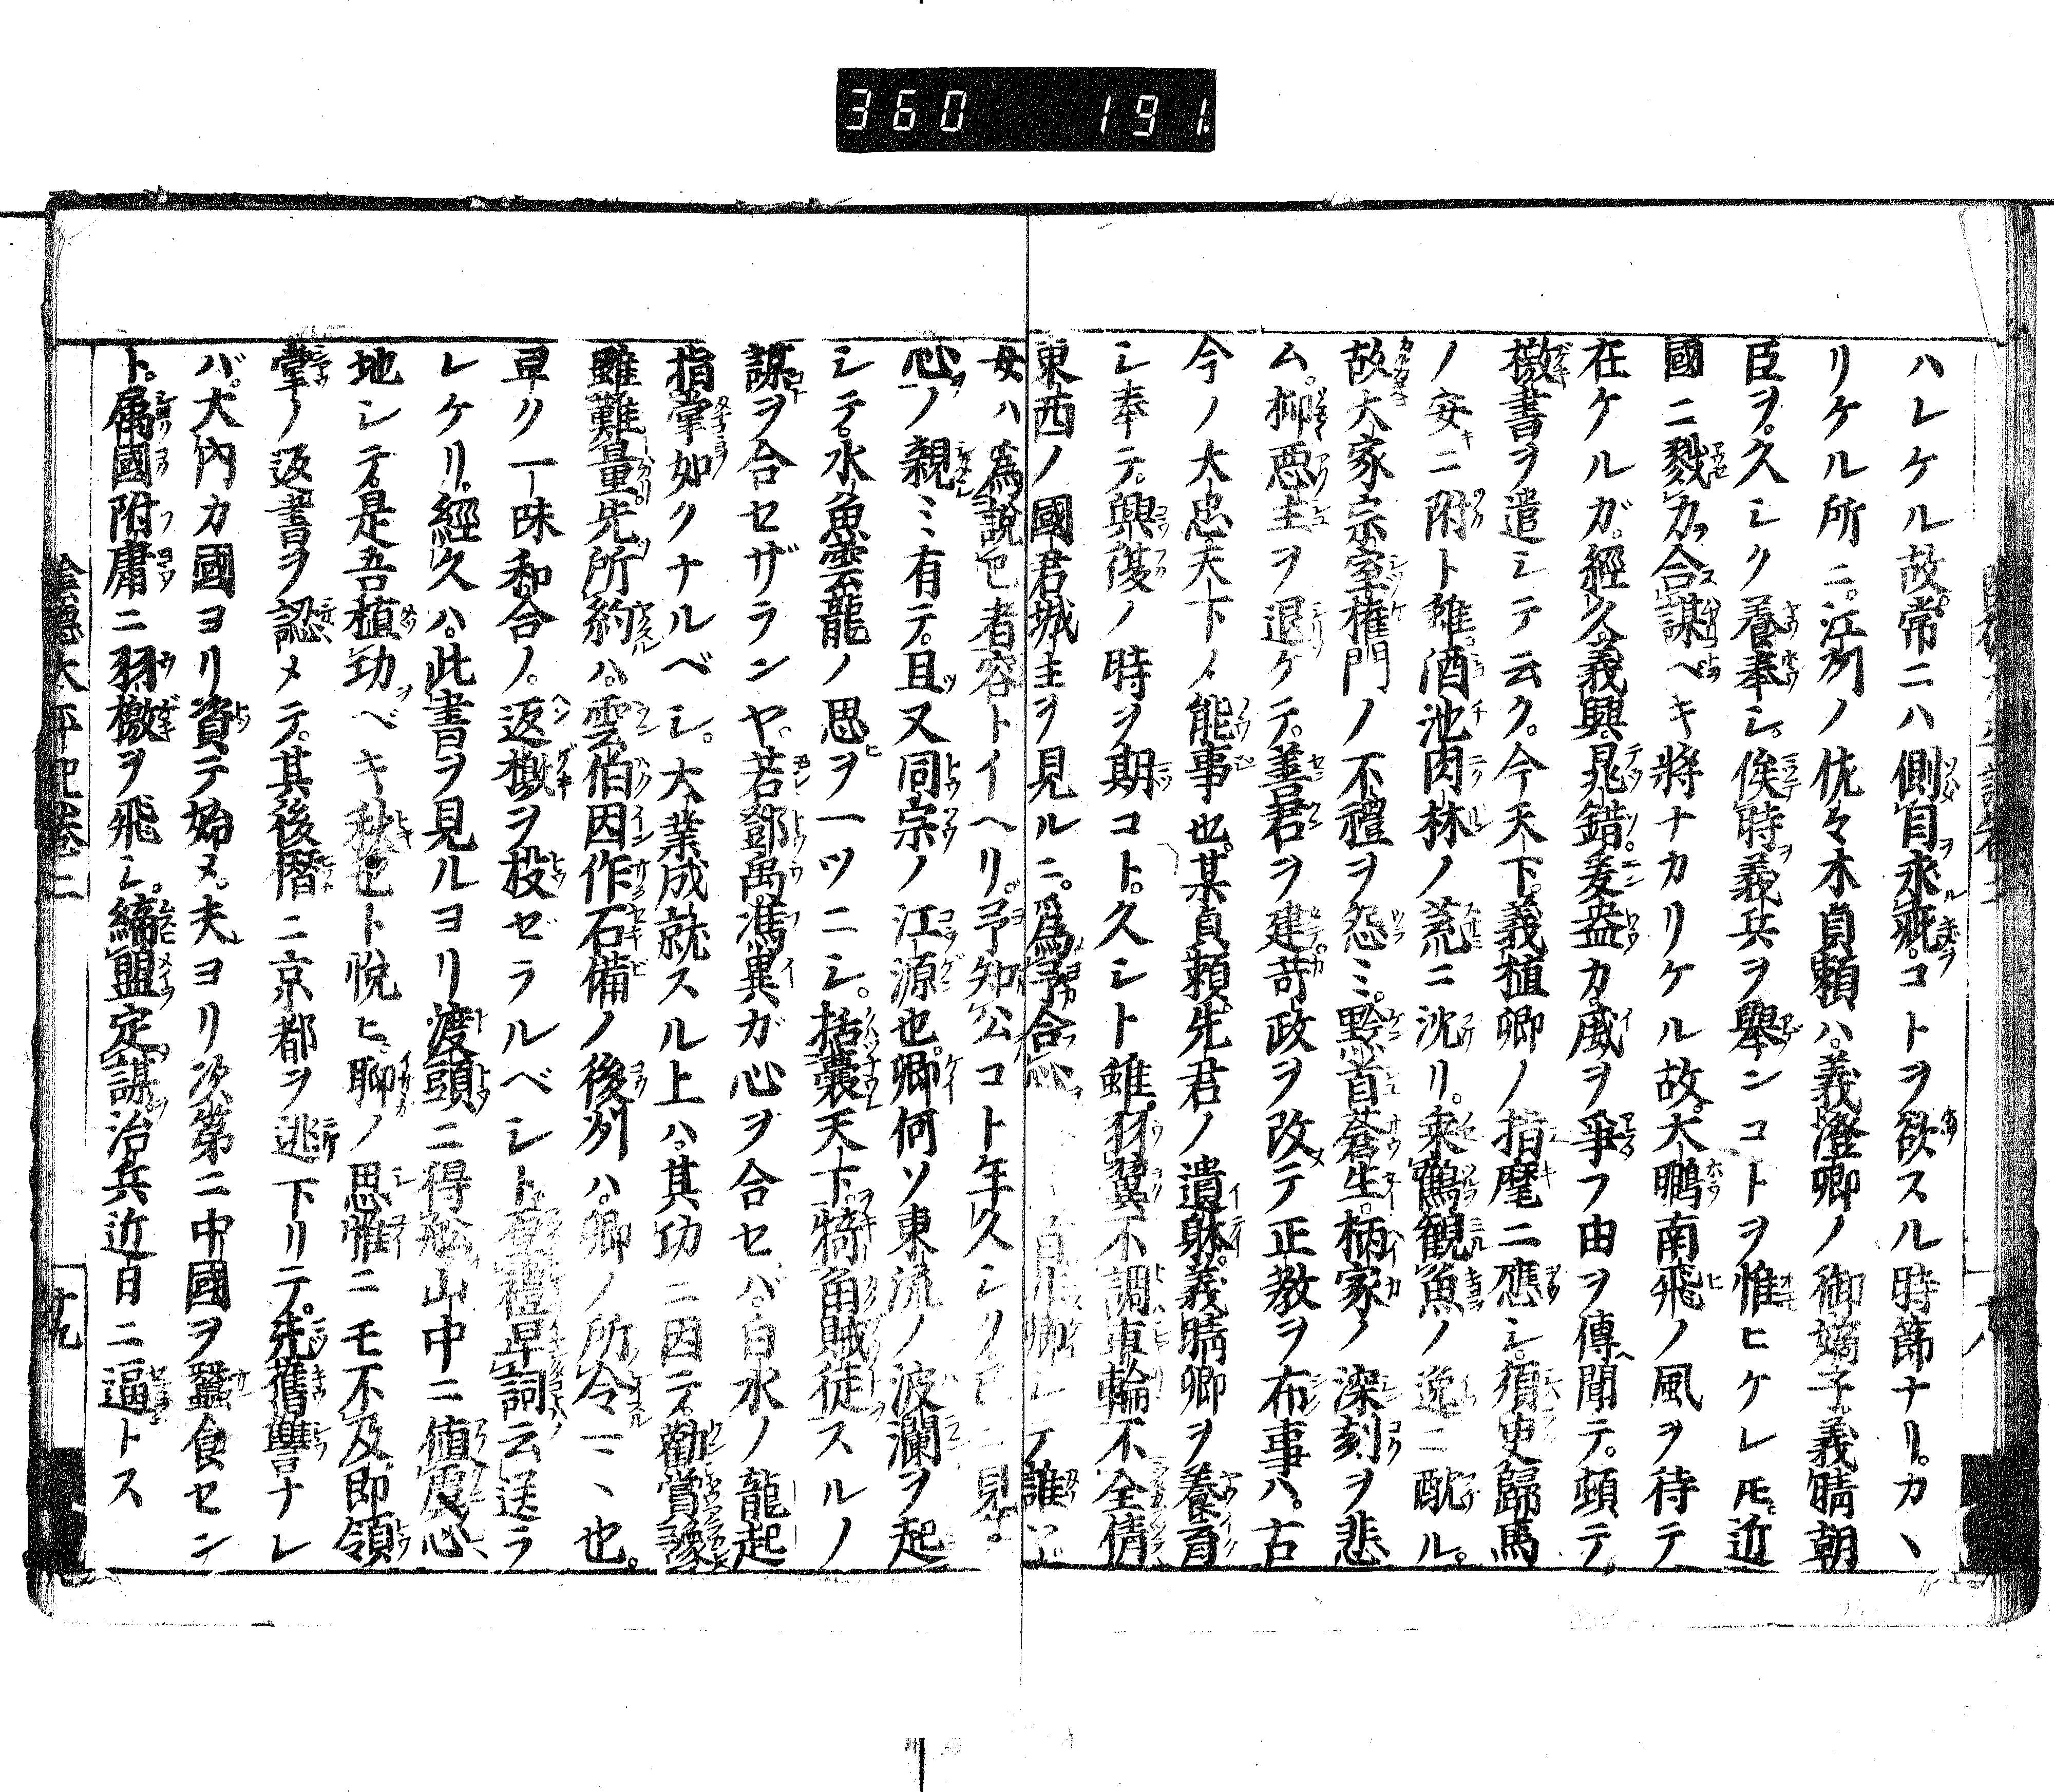 360 191
ハレケル故。常ニハ側目永疵。コトヲ欲スル時節ナリ。カヽ
リケル所ニ。江州ノ佐々木貞頼ハ。義澄卿ノ御嫡子義晴朝
臣ヲ。久シク養奉シ。俟時義兵ヲ舉ンコトヲ惟ヒケレ𪜈。近
國ニ戮力。合謀ベキ將ナカリケル故。大鵬南飛ノ風ヲ待テ
在ケルガ。經久義興。晁錯爰盎カ威ヲ爭フ由ヲ傳聞テ。頓テ
檄書ヲ遣シテ云ク。今天下。義植卿ノ指麾ニ應シ。須史歸馬
ノ安ニ附ト雖。酒池肉林ノ荒ニ沈リ。乘鶴觀魚ノ逸ニ酖ル。
故大家宗室權門ノ不禮ヲ怨ミ。黔首蒼生。柄家ノ深刻ヲ悲
ム。抑惡主ヲ退ケテ。善君ヲ建。苛政ヲ改テ正教ヲ布事ハ。古
今ノ大忠。天下ノ能事也。某貞頼先君ノ遺躰。義晴卿ヲ養育
シ奉テ。興復ノ時ヲ期コト。久シト雖。羽翼不調。車輪不全。倩
東西ノ國君城主ヲ見ルニ。爲予合心
女ハ爲說已者容トイヘリ。予知公コト年久シ
心ノ親ミ有テ。且又同宗ノ江源也。卿何ソ東流ノ波瀾ヲ起
シテ。水魚雲龍ノ思ヲ一ツニシ。括囊天下。犄角賊徒スルノ
謀ヲ合セザランヤ。若鄧禹。馮異ガ心ヲ合セバ。白水ノ龍起
指掌如クナルベシ。大業成就スル上ハ。其功ニ因テ。勸賞豫
雖難量。先所約ハ。雲伯因作石備ノ後州ハ。卿ノ所令一ヽ也。
早ク一味和合ノ。返檄ヲ投ゼラルベシト。禮卑詞云送ラ
レケリ。經久ハ。此書ヲ見ルヨリ渡頭ニ得舩。山中ニ値
地シテ。是吾植功ベキ秋也ト悅ヒ。聊ノ思惟ニモ不及。即領
掌ノ返書ヲ認メテ。其後潛ニ京都ヲ逃下リテ。先舊讐ナレ
バ。大內カ國ヨリ資テ始メ。夫ヨリ次第ニ中國ヲ蠶食セン
ト。属國附庸ニ羽檄ヲ飛シ。締盟定謀治兵近日ニ逼トス
陰德太平記卷二
十九